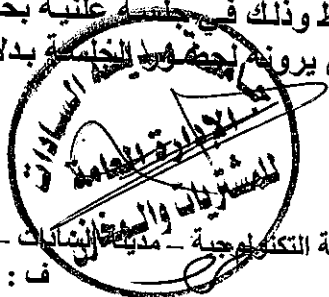 ط وذلك في جلسة علنية بحـ
يرونه لحضور الجلسة بدلا
جامعة مدينة السادات
الإدارة العامة
للمشتريات والمخازن
ة التكنولوجية – مدينة السادات –
ف :